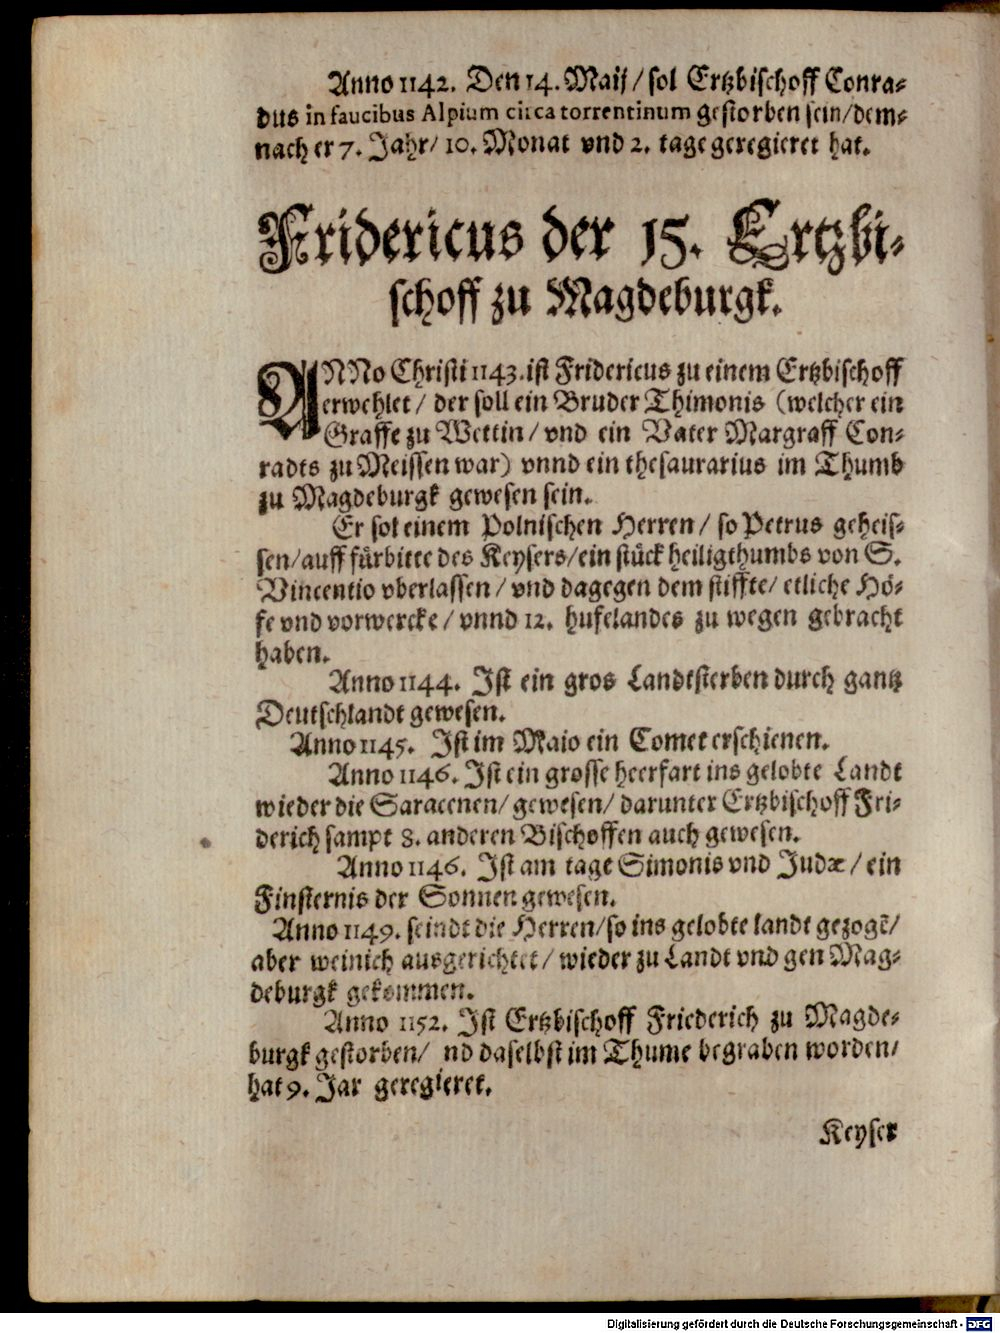 Anno 1142. Den 14. Maij / sol Ertzbischoff Conra-
dus in faucibus Alpium circa torrentinum gestorben sein / dem-
nach er 7. Jahr / 10. Monat vnd 2. tage geregieret hat.
Fridericus der 15. Ertzbi-
schoff zu Magdeburgk.
ANNo Christi 1143. ist Fridericus zu einem Ertzbischoff
erwehlet / der soll ein Bruder Thimonis (welcher ein
Graffe zu Wettin / vnd ein Vater Margraff Con-
radts zu Meissen war) vnnd ein thesaurarius im Thumb
zu Magdeburgk gewesen sein.
Er sol einem Polnischen Herren / so Petrus geheis-
sen / auff fürbitte des Keysers / ein stück heiligthumbs von S.
Vincentio vberlassen / vnd dagegen dem stiffte / etliche Hö-
fe vnd vorwercke / vnnd 12. hufelandes zu wegen gebracht
haben.
Anno 1144. Ist ein gros Landtsterben durch gantz
Deutschlandt gewesen.
Anno 1145. Ist im Maio ein Comet erschienen.
Anno 1146. Ist ein grosse heerfart ins gelobte Landt
wieder die Saracenen / gewesen / darunter Ertzbischoff Fri-
derich sampt 8. anderen Bischoffen auch gewesen.
Anno 1146. Ist am tage Simonis vnd Judæ / ein
Finsternis der Sonnen gewesen.
Anno 1149. seindt die Herren / so ins gelobte landt gezogē /
aber weinich ausgerichtet / wieder zu Landt vnd gen Mag-
deburgk gekommen.
Anno 1152. Ist Ertzbischoff Friederich zu Magde-
burgk gestorben / nd daselbst im Thume begraben worden /
hat 9. Jar geregieret.
Keyser
Digitalisierung gefördert durch die Deutsche Forschungsgemeinschaft - DFG